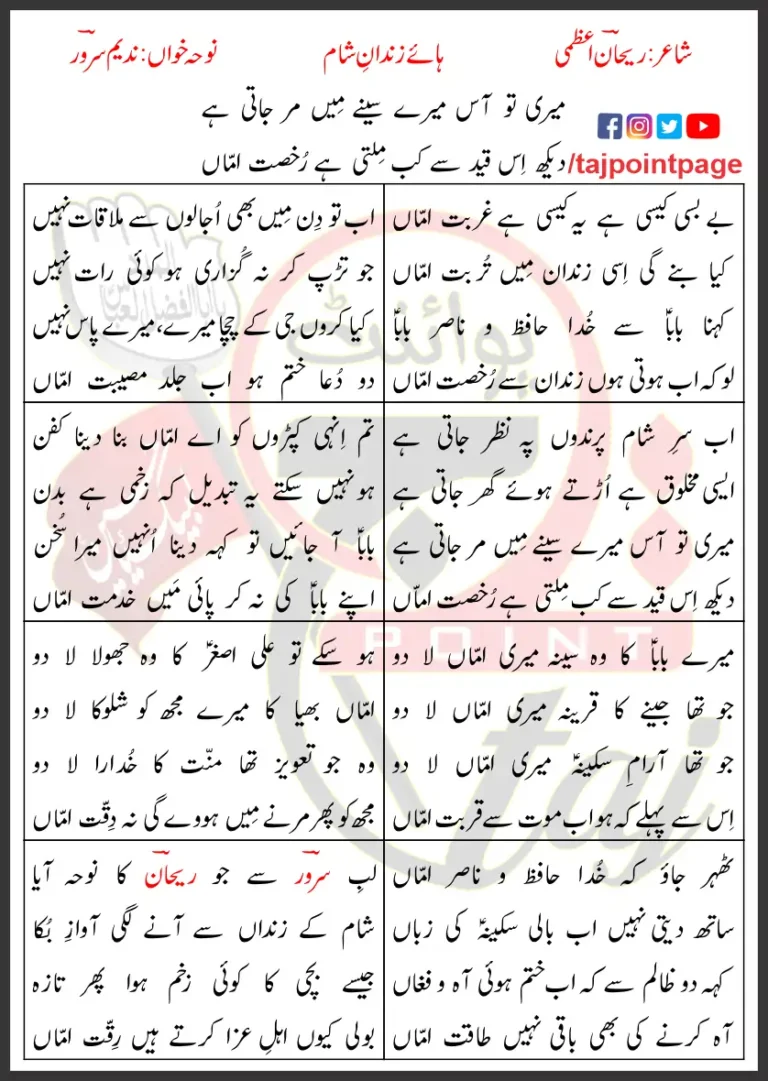 شاعر: ریحان اعظمی
ہائے زندانِ شام
نوحہ خواں: ندیم سرور
میری تو آس میرے سینے مِیں مر جاتی ہے
دیکھ اِس قید سے کب مِلتی ہے رُخصت امّاں
/tajpointpage
بے بسی کیسی ہے یہ کیسی ہے غربت امّاں
کیا بنے گی اِسی زندان مِیں تُربت امّاں
کہنا باباؑ سے خُدا حافظ و ناصر باباؑ
لو کہ اب ہوتی ہوں زندان سے رُخصت امّاں
اب تو دِن مِیں بھی اُجالوں سے ملاقات نہیں
جو تڑپ کر نہ گُزاری ہو کوئی رات نہیں
کیا کروں جی کے چچا میرے، میرے پاس نہیں
دو دُعا ختم ہو اب جلد مصیبت امّاں
اب سرِ شام پرندوں پہ نظر جاتی ہے
ایسی مخلوق ہے اُڑتے ہوئے گھر جاتی ہے
میری تو آس میرے سینے مِیں مر جاتی ہے
دیکھ اِس قید سے کب مِلتی ہے رُخصت امّاں
تم اِنہی کپڑوں کو اے امّاں بنا دینا کفن
ہو نہیں سکتے یہ تبدیل کہ زخمی ہے بدن
باباؑ آ جائیں تو کہہ دینا اُنہیں میرا سُخن
اپنے باباؑ کی نہ کر پائی مَیں خدمت امّاں
میرے باباؑ کا وہ سینہ میری امّاں لا دو
جو تھا جینے کا قرینہ میری امّاں لا دو
جو تھا آرامِ سکینہؑ میری امّاں لا دو
اِس سے پہلے کہ ہو اب موت سے قربت امّاں
ہو سکے تو علی اصغرؑ کا وہ جھولا لا دو
امّاں بھیا کا میرے مجھ کو شلوکا لا دو
وہ جو تعویز تھا منّت کا خُدارا لا دو
مجھ کو پھر مرنے مِیں ہووے گی نہ دِقّت امّاں
ٹھہر جاؤ کہ خُدا حافظ و ناصر امّاں
ساتھ دیتی نہیں اب بالی سکینہؑ کی زباں
کہہ دو ظالم سے کہ اب ختم ہوئی آہ و فغاں
آہ کرنے کی بھی باقی نہیں طاقت امّاں
لبِ سرور سے جو ریحان کا نوحہ آیا
شام کے زنداں سے آنے لگی آوازِ بُکا
جیسے بچی کا کوئی زخم ہوا پھر تازہ
بولی کیوں اہلِ عزا کرتے ہیں رِقّت امّاں
پوائنٹ
POINT
taj